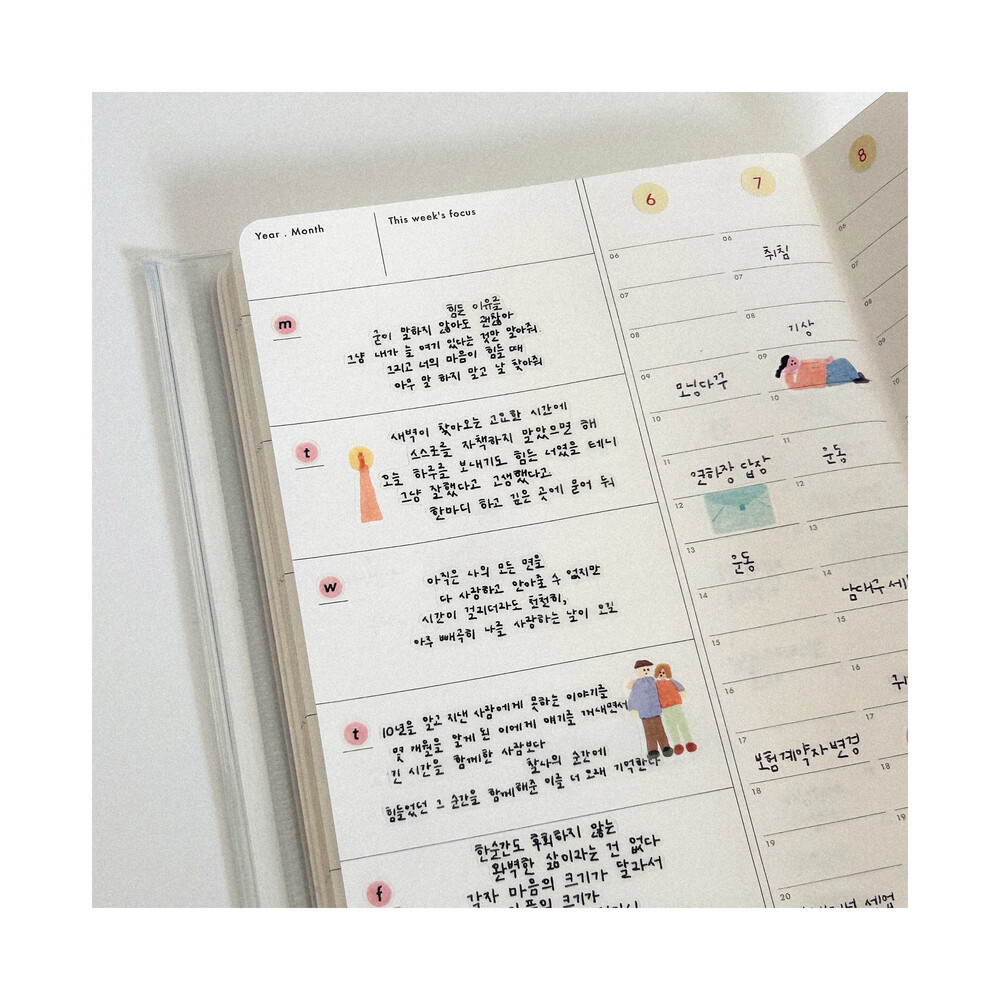 Year . Month
This week's focus
m
힘든 이유를
굳이 말하지 않아도 괜찮아
그냥 내가 늘 여기 있다는 것만 알아줘.
그리고 너의 마음이 힘들 때
아무 말 하지 말고 날 찾아줘
t
새벽이 찾아오는 고요한 시간에
스스로를 자책하지 말았으면 해
오늘 하루를 보내기도 힘든 너였을 테니
그냥 잘했다고 고생했다고
한마디 하고 깊은 곳에 묻어 둬
w
아직은 나의 모든 면을
다 사랑하고 안아줄 수 없지만
시간이 걸리더라도 천천히,
아주 빼곡히 나를 사랑하는 날이 오길
t
10년을 알고 지낸 사람에게 못하는 이야기를
몇 개월을 알게 된 이에게 얘기를 꺼내면서
긴 시간을 함께한 사람보다
찰나의 순간에
힘들었던 그 순간을 함께해준 이를 더 오래 기억한다
f
한순간도 후회하지 않는
완벽한 삶이라는 건 없다
각자 마음의 크기가 달라서
크기가
6
06
07
08
09
모닝다꾸
10
11
연하장 답장
12
13
운동
14
15
16
17
보험계약자변경
18
19
20
7
06
취침
07
08
기상
09
10
11
운동
12
13
14
남대구 세
15
16
17
18
19
세업
8
06
07
08
09
10